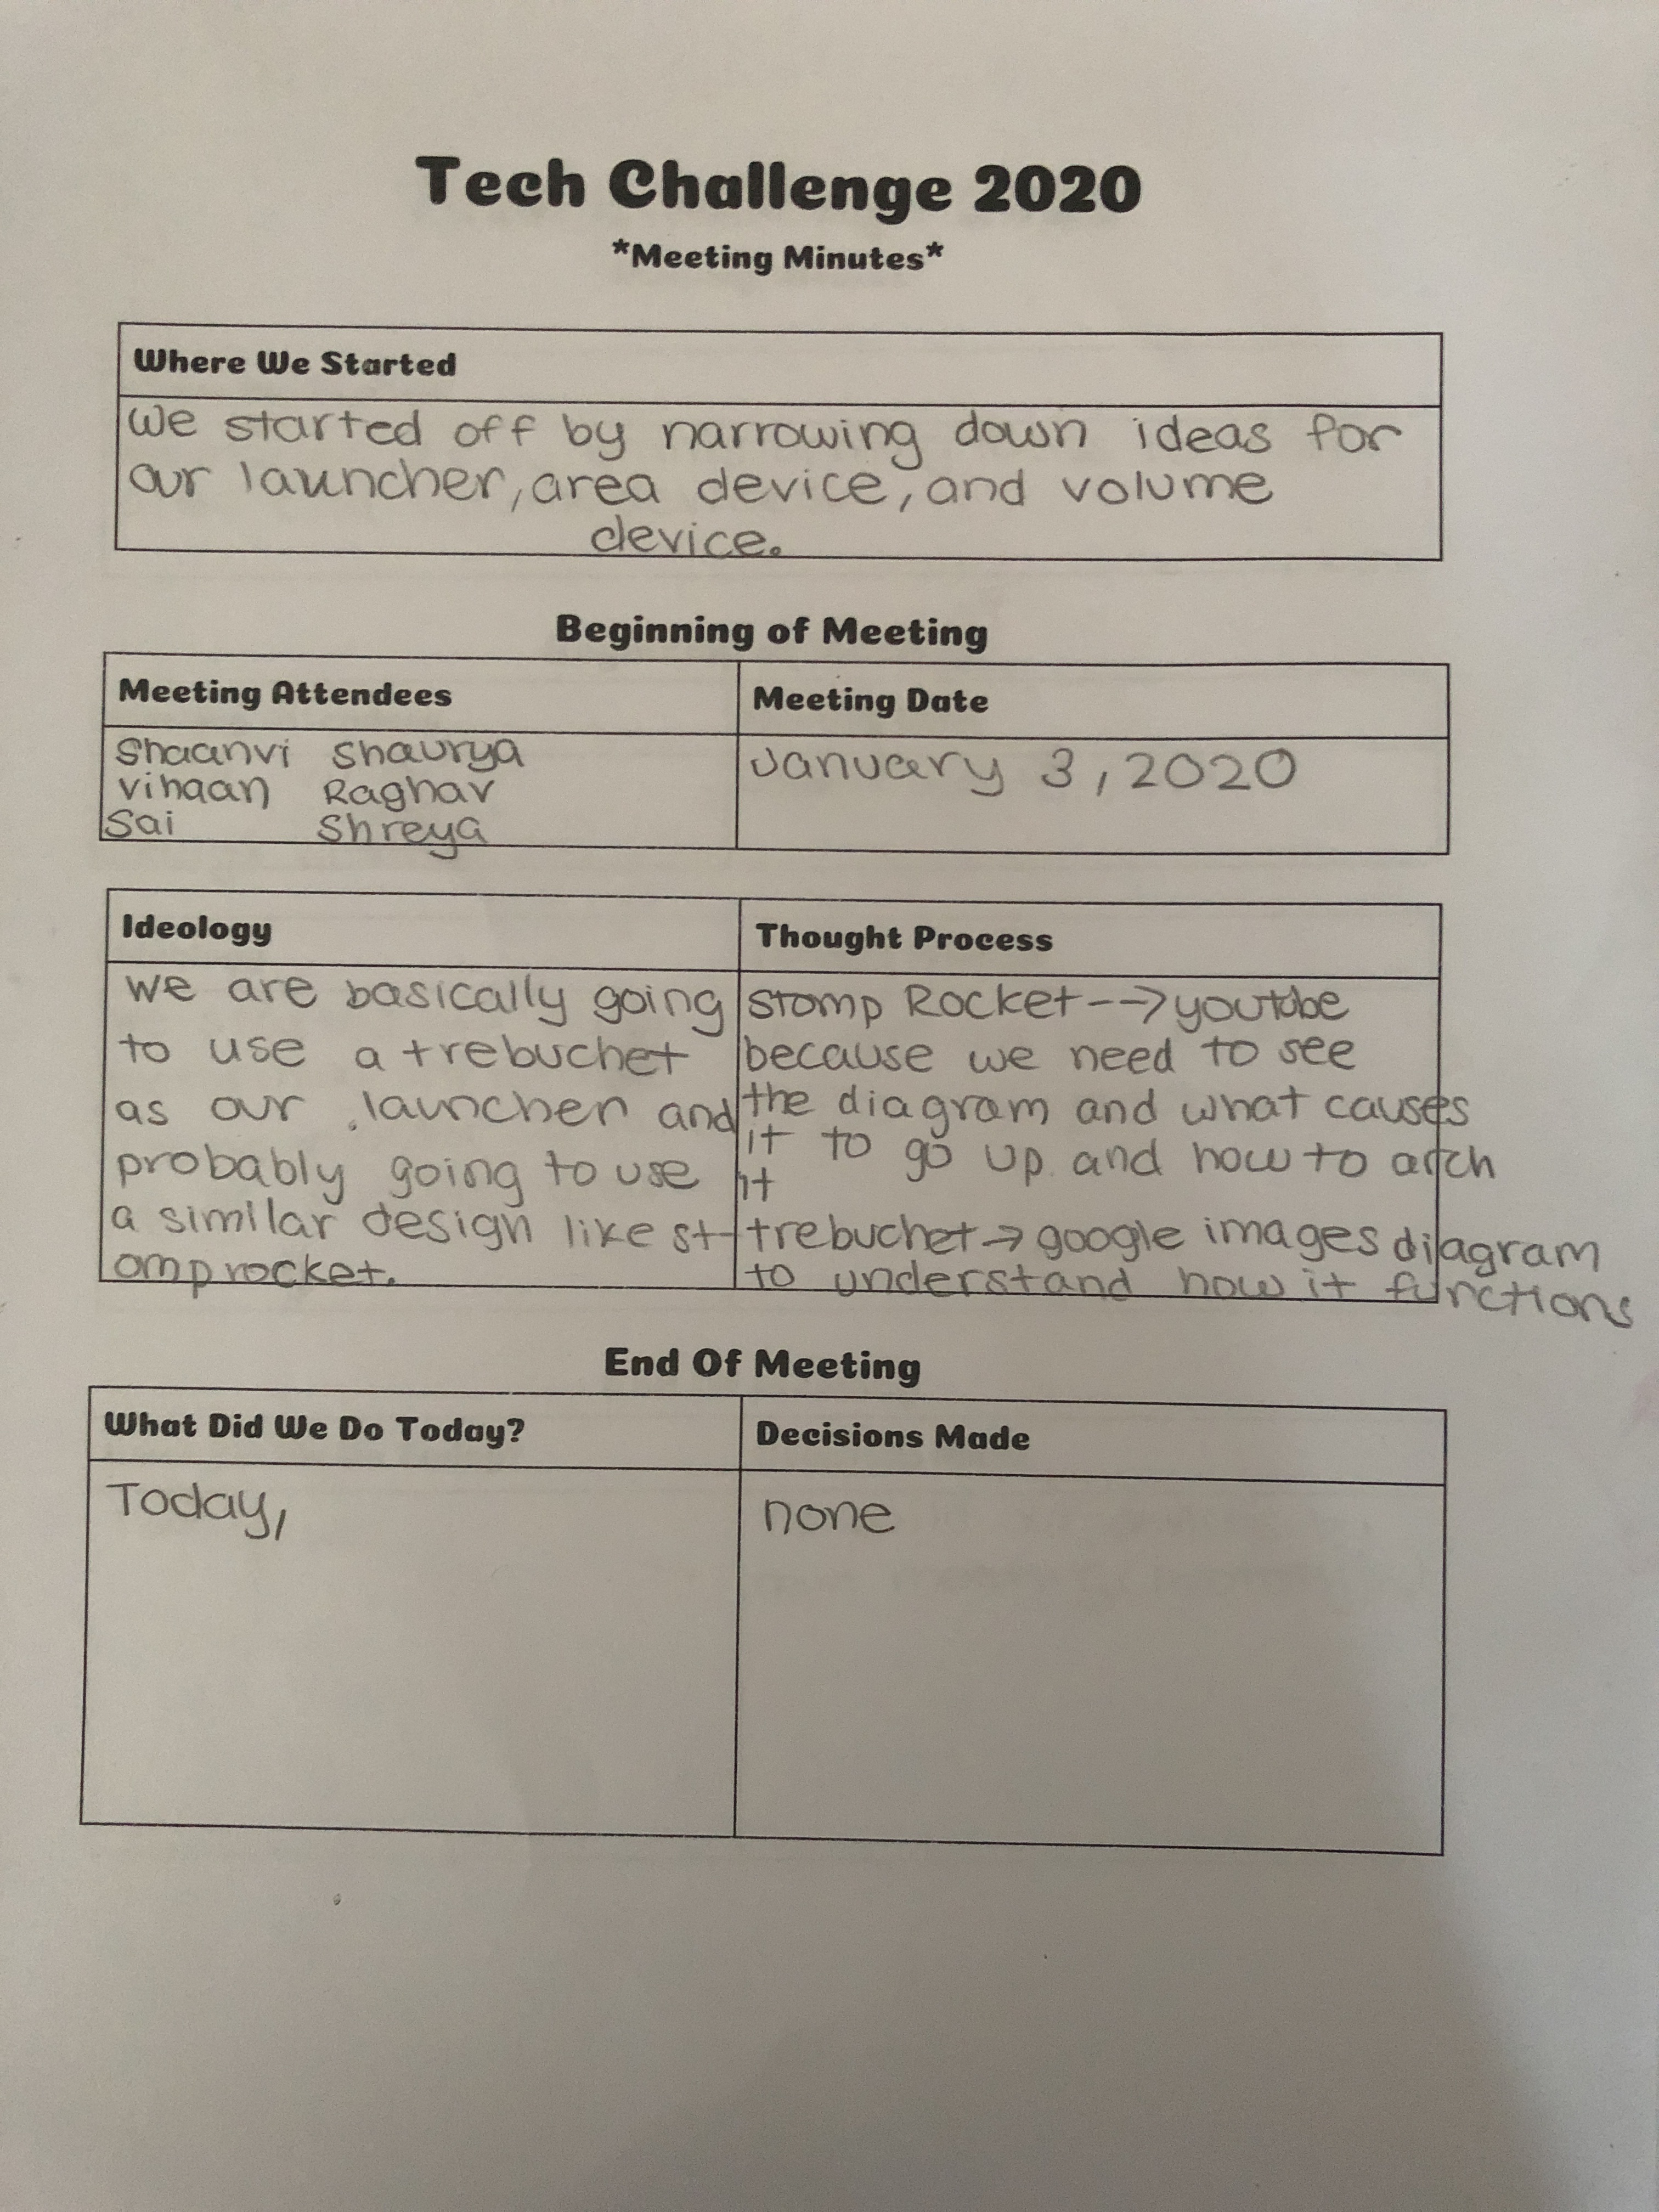 Tech Challenge 2020
*Meeting Minutes*
Where We Started
We started off by narrowing down ideas for
our launcher, area device, and volume
device.
Beginning of Meeting
Meeting Attendees
Meeting Date
Shaanvi Shaurya
Vihaan Raghav
Sai Shreya
January 3, 2020
Ideology
Thought Process
We are basically going
to use a trebuchet
as our launcher and
probably going to use
a similar design like st-
omp rocket.
Stomp Rocket --> youtube
because we need to see
the diagram and what causes
it to go up and how to arch
it
trebuchet → google images diagram
to understand how it functions
End Of Meeting
What Did We Do Today?
Decisions Made
Today,
none